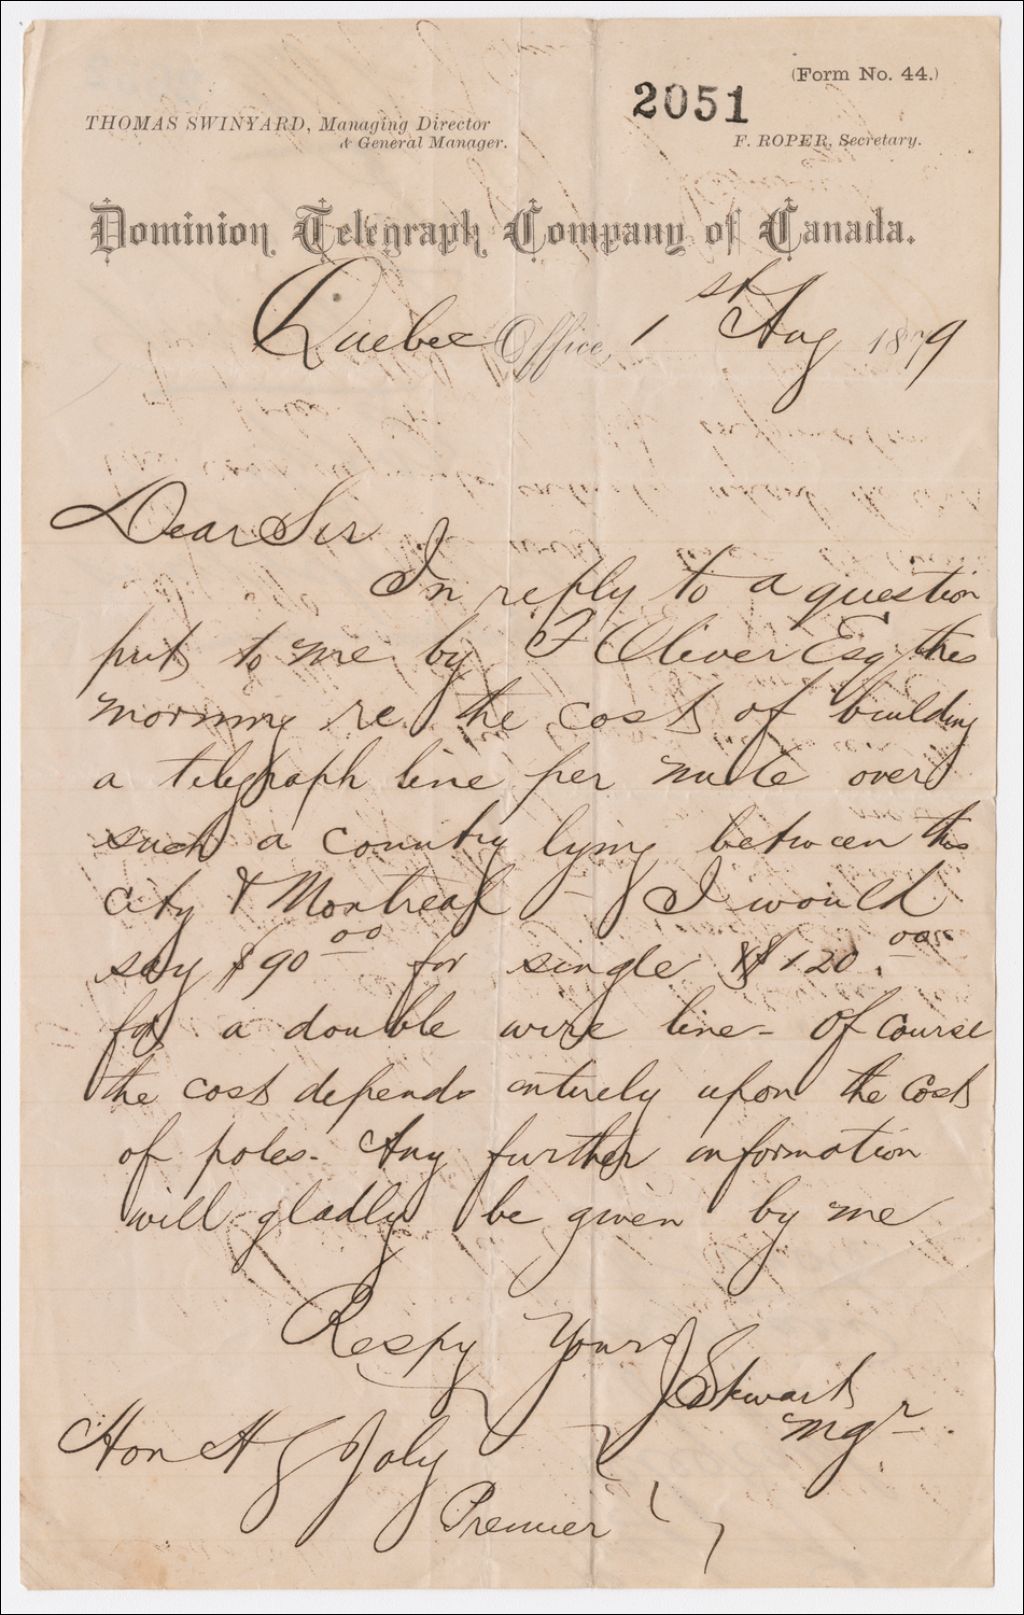 (Form No. 44.)
2051
THOMAS SWINYARD, Managing Director
& General Manager.
F. ROPER, Secretary.
Dominion Telegraph Company of Canada.
Quebec Office, 1st Aug 1879
Dear Sir
In reply to a question
put to me by F Oliver Esq this
morning re. the cost of building
a telegraph line per mile over
such a country lying between this
city & Montreal - I would
say $90 00 for single & $120.00
for a double wire line - Of course
the cost depends entirely upon the cost
of poles - Any further information
will gladly be given by me
Respy Yours
J Stewart
Mgr
Hon H G Joly
Premier